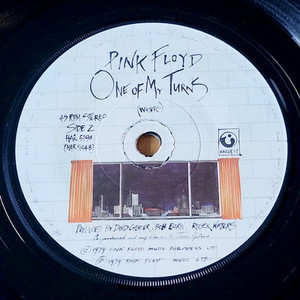 PINK FLOYD
ONE OF MY TURNS
(WATERS)
45 RPM STEREO
SIDE 2
HAR 5194
HARVEST
PRODUCED BY DAVID GILMOUR, BOB EZRIN, ROGER WATERS
Ⓒ 1979 PINK FLOYD MUSIC PUBLISHERS LTD
Ⓟ 1979 PINK FLOYD MUSIC LTD